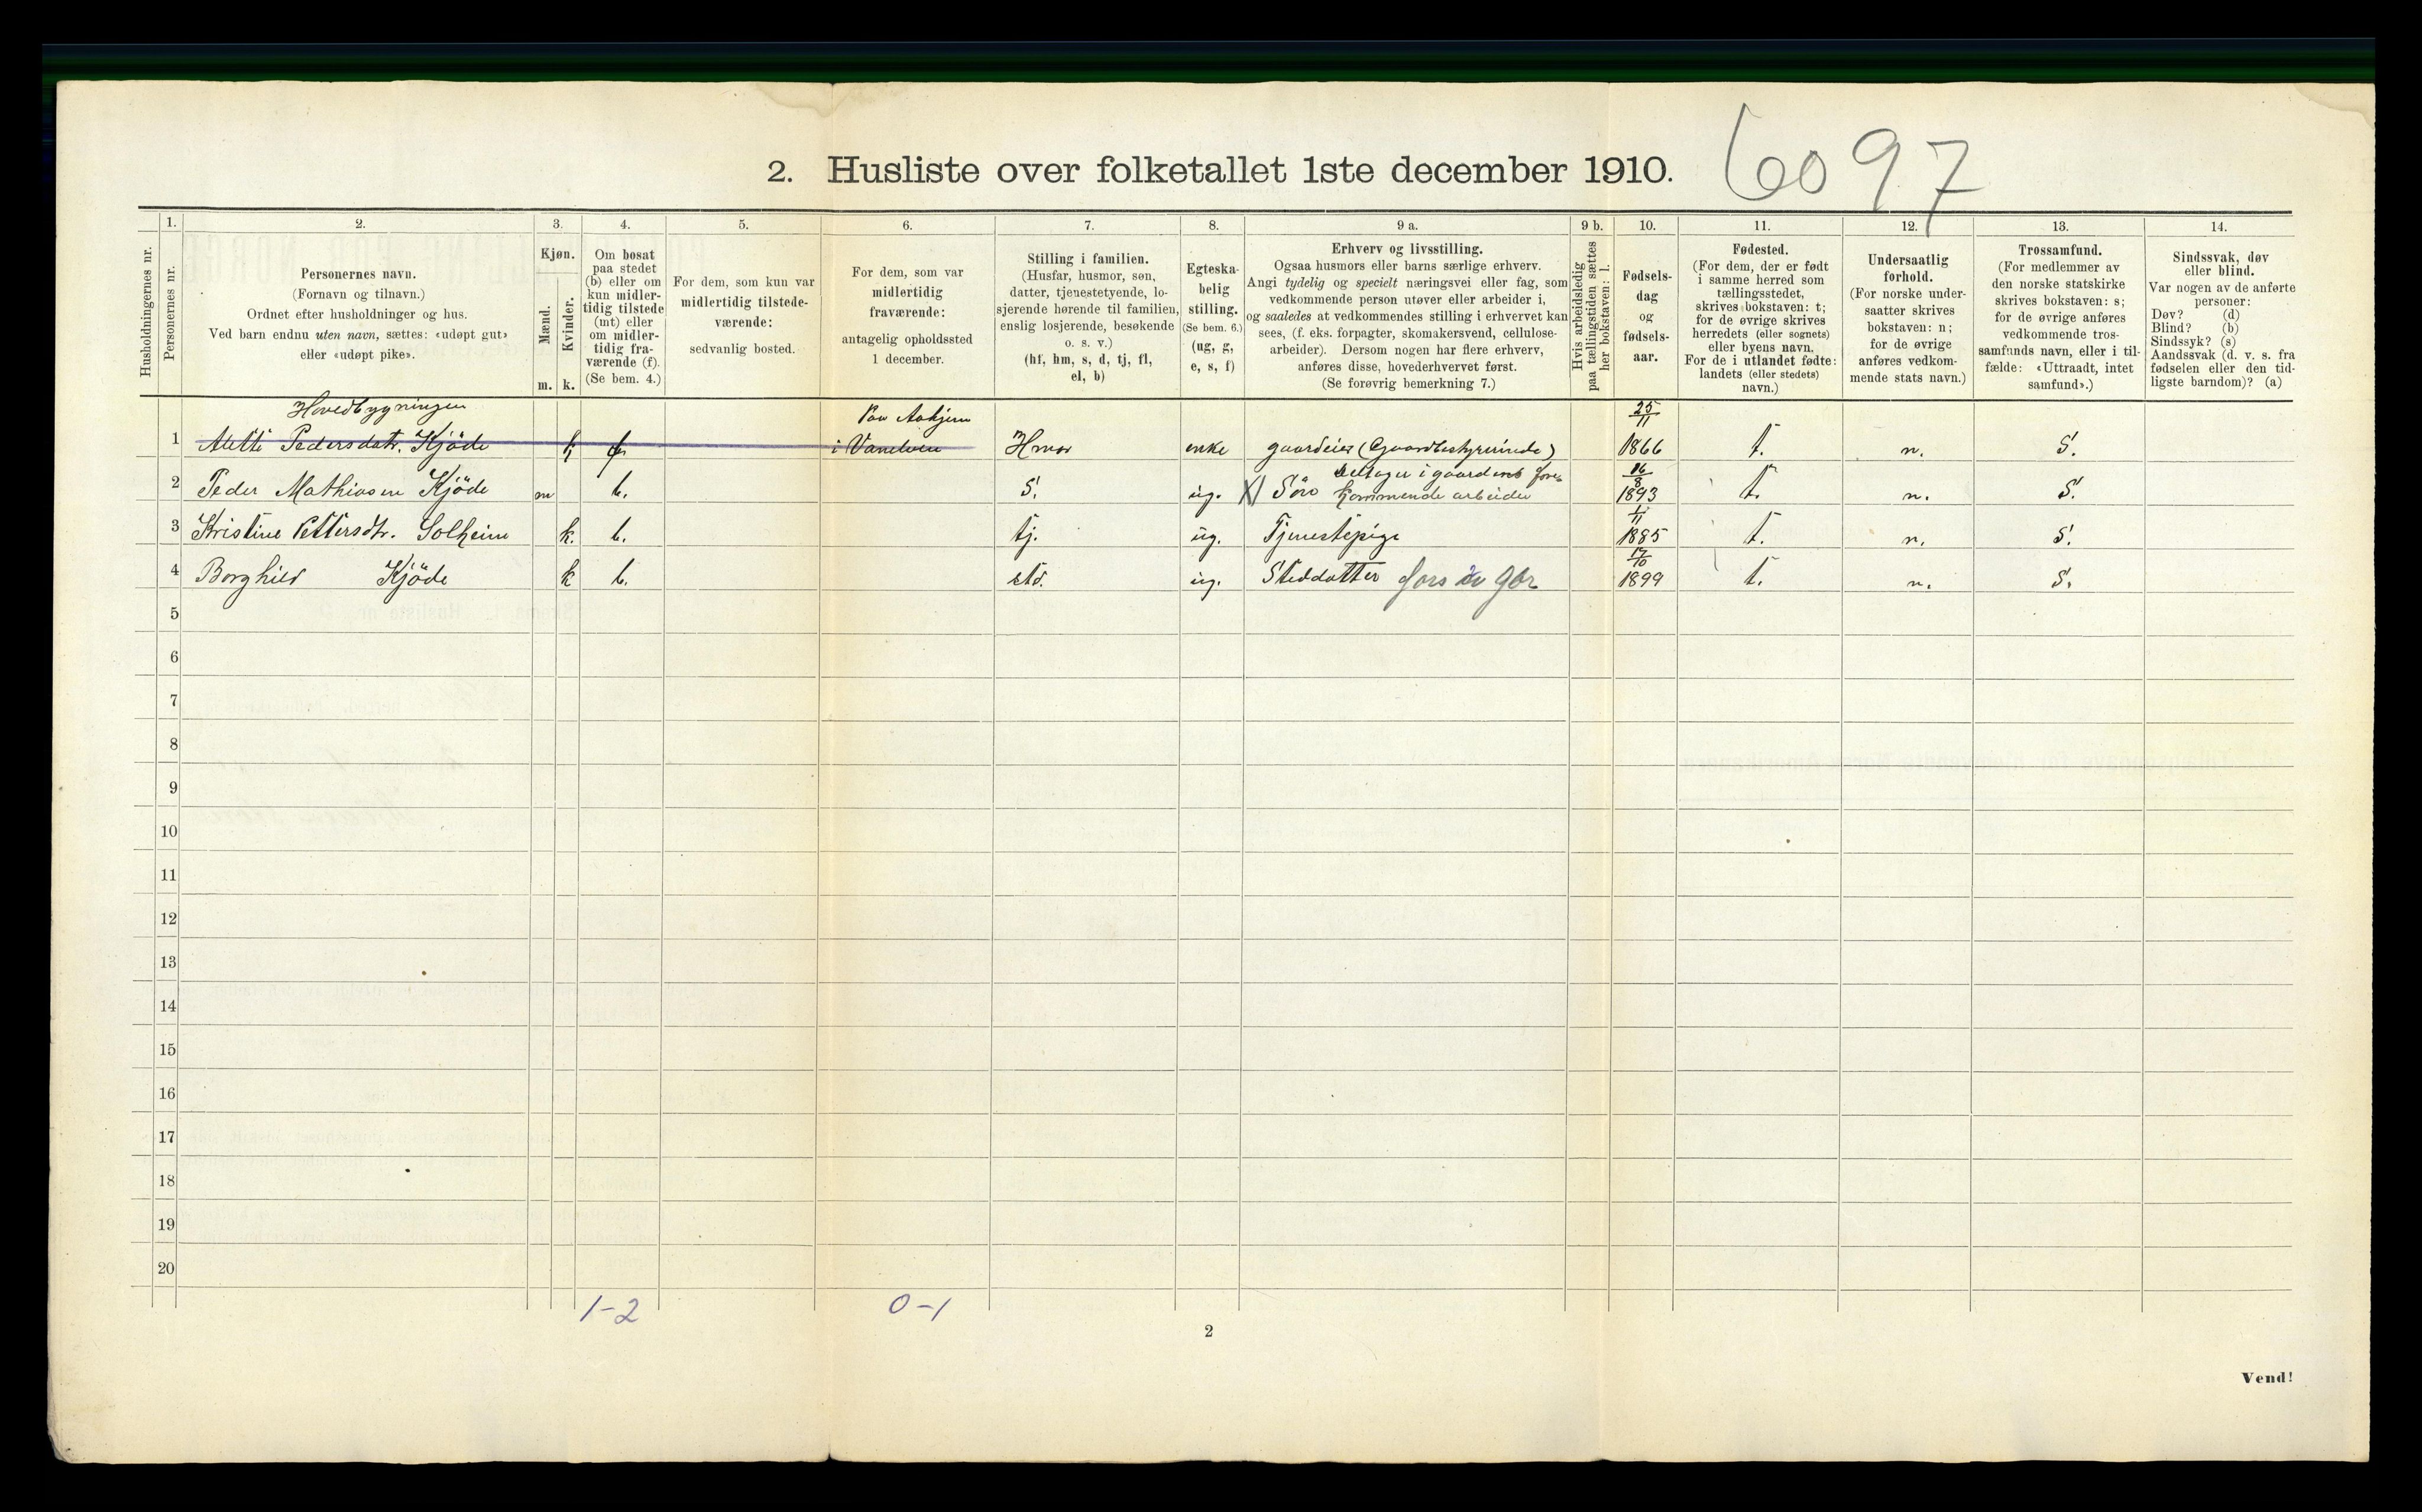 2. Husliste over folketallet 1ste december 1910.
6097
1. 2. 3. 4. 5. 6. 7. 8. 9 a. 9 b. 10. 11. 12. 13. 14.
Husholdningernes nr.
Personernes nr.
Personernes navn.
(Fornavn og tilnavn.)
Ordnet efter husholdninger og hus.
Ved barn endnu uten navn, sættes: «udøpt gut»
eller «udøpt pike».
Kjøn.
Mænd.
Kvinder.
m. k.
Om bosat
paa stedet
(b) eller om
kun midler-
tidig tilstede
(mt) eller
om midler-
tidig fra-
værende (f).
(Se bem. 4.)
For dem, som kun var
midlertidig tilstede-
værende:
sedvanlig bosted.
For dem, som var
midlertidig
fraværende:
antagelig opholdssted
1 december.
Stilling i familien.
(Husfar, husmor, søn,
datter, tjenestetyende, lo-
sjerende hørende til familien,
enslig losjerende, besøkende
o. s. v.)
(hf, hm, s, d, tj, fl,
el, b)
Egteska-
belig
stilling.
(Se bem. 6.)
(ug, g,
e, s, f)
Erhverv og livsstilling.
Ogsaa husmors eller barns særlige erhverv.
Angi tydelig og specielt næringsvei eller fag, som
vedkommende person utøver eller arbeider i,
og saaledes at vedkommendes stilling i erhvervet kan
sees, (f. eks. forpagter, skomakersvend, cellulose-
arbeider). Dersom nogen har flere erhverv,
anføres disse, hovederhvervet først.
(Se forøvrig bemerkning 7.)
Hvis arbeidsledig
paa tællingstiden sættes
her bokstaven: l.
Fødsels-
dag
og
fødsels-
aar.
Fødested.
(For dem, der er født
i samme herred som
tællingsstedet,
skrives bokstaven: t;
for de øvrige skrives
herredets (eller sognets)
eller byens navn.
For de i utlandet fødte:
landets (eller stedets)
navn.)
Undersaatlig
forhold.
(For norske under-
saatter skrives
bokstaven: n;
for de øvrige
anføres vedkom-
mende stats navn.)
Trossamfund.
(For medlemmer av
den norske statskirke
skrives bokstaven: s;
for de øvrige anføres
vedkommende tros-
samfunds navn, eller i til-
fælde: «Uttraadt, intet
samfund».)
Sindssvak, døv
eller blind.
Var nogen av de anførte
personer:
Døv? (d)
Blind? (b)
Sindssyk? (s)
Aandssvak (d. v. s. fra
fødselen eller den tid-
ligste barndom)? (a)
Hovedbygningen
Paa Aahjem
25/11
1 Alette Pedersdatr. Kjöde k f i Vanelven Hmor enke gaardeier (Gaardbestyrerinde) 1866 t. n. S.
Deltager i gaardens fore-
16/8
2 Peder Mathiasen Kjöde m b. S. ug. X Sön kommende arbeider 1893 t. n. S.
1/11
3 Kristine Pettersdtr. Solheim k. b. tj. ug. Tjenestepige 1885 t. n. S.
17/10
4 Borghild Kjöde k b. std. ug. Steddatter fors av gbr 1899 t. n. S.
5
6
7
8
9
10
11
12
13
14
15
16
17
18
19
20
1-2 0-1
2
Vend!